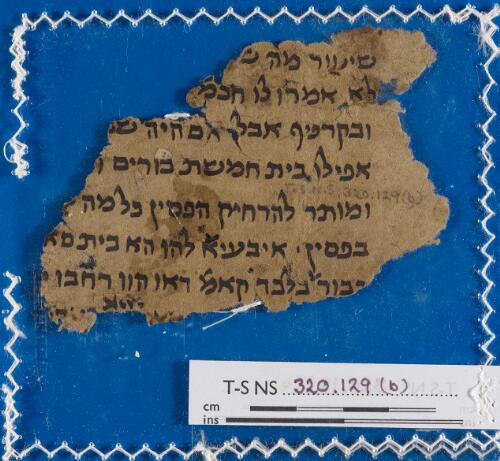 שיעור מה
לא אמרו לו חכמ
ובקרפיף אבל אם היה
אפילו בית חמשת כורים
ומותר להרחיק הפסין כל מה
בפסין איבעיא להו הא בית סא
בלבד קאמ' דאו הוו רחבו
T-S N.S. 320.129(b)
T-S NS 320.129(b)
cm
ins